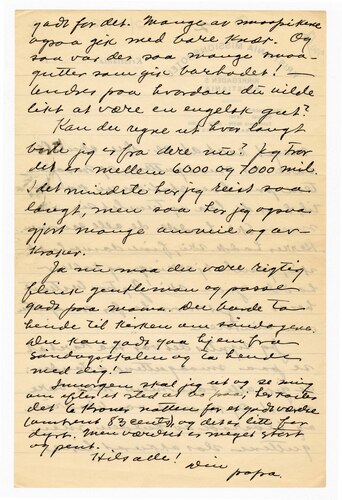 godt for det. Mange av smaapikene
ogsaa gik med bare knær. Og
saa var der saa mange smaa-
gutter som gik barbodet! —
undres paa hvordan du vilde
likt at være en engelsk gut?
Kan du regne ut hvor langt
borte jeg er fra dere nu? Jeg tror
det er mellem 6000 og 7000 mil.
I det mindste har jeg reist saa
langt, men saa har jeg ogsaa
gjort mange omveie og av-
kroker.
Ja nu maa du være rigtig
flink gentleman og passe
godt paa mama. Du burde ta
hende til kirken om söndagene.
Du kan godt gaa hjem fra
Söndagsskolen og ta hende
med dig.
Imorgen skal jeg ut og se mig
om efter et sted at bo paa; her koster
det 6 Kroner natten for et godt værelse
(omtrent 83 cents), og det er litt for
dyrt. Men værelset er meget stort
og pent.
Hils alle!
Din
papa.